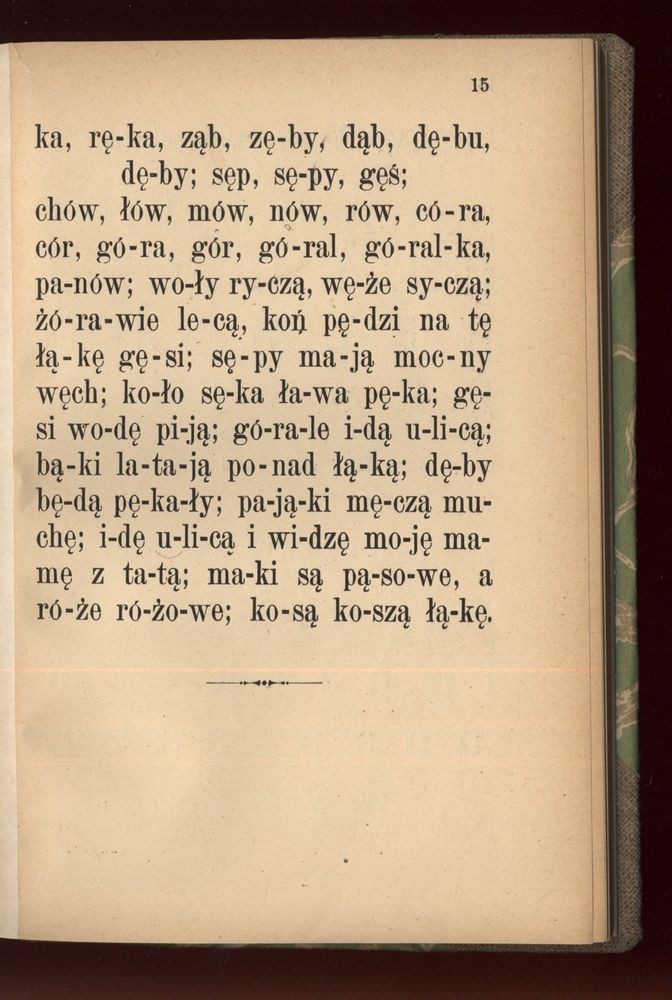 15
ka, rę-ka, ząb, zę-by, dąb, dę-bu,
dę-by; sęp, sę-py, gęś;
chów, łów, mów, nów, rów, có-ra,
cór, gó-ra, gór, gó-ral, gó-ral-ka,
pa-nów; wo-ły ry-czą, wę-że sy-czą;
żó-ra-wie le-cą, koń pę-dzi na tę
łą-kę gę-si; sę-py ma-ją moc-ny
węch; ko-ło sę-ka ła-wa pę-ka; gę-
si wo-dę pi-ją; gó-ra-le i-dą u-li-cą;
bą-ki la-ta-ją po-nad łą-ką; dę-by
bę-dą pę-ka-ły; pa-ją-ki mę-czą mu-
chę; i-dę u-li-cą i wi-dzę mo-ję ma-
mę z ta-tą; ma-ki są pą-so-we, a
ró-że ró-żo-we; ko-są ko-szą łą-kę.